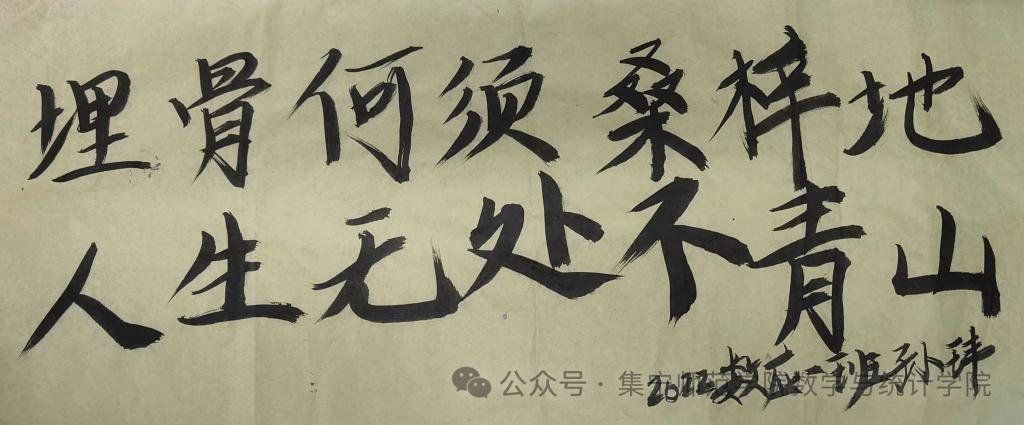 埋骨何须桑梓地
人生无处不青山
2022数应一班孙玮
公众号·集宁师范学院数学与统计学院